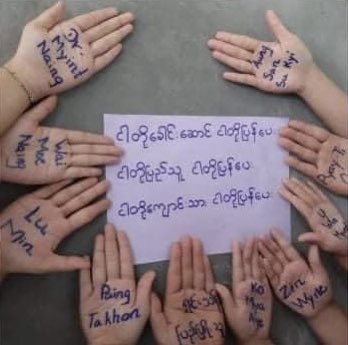 Dr.
Myint
Naing
Aung
San
Su Kyi
ငါတို့ခေါင်းဆောင် ငါတို့ပြန်ပေး
ငါတို့ပြည်သူ ငါတို့ပြန်ပေး
ငါတို့ကျောင်းသား ငါတို့ပြန်ပေး
Wai
Moe
Naing
Lu
Min
Paing
Takhon
Ko
Mya
Aye
Zin
Wyne